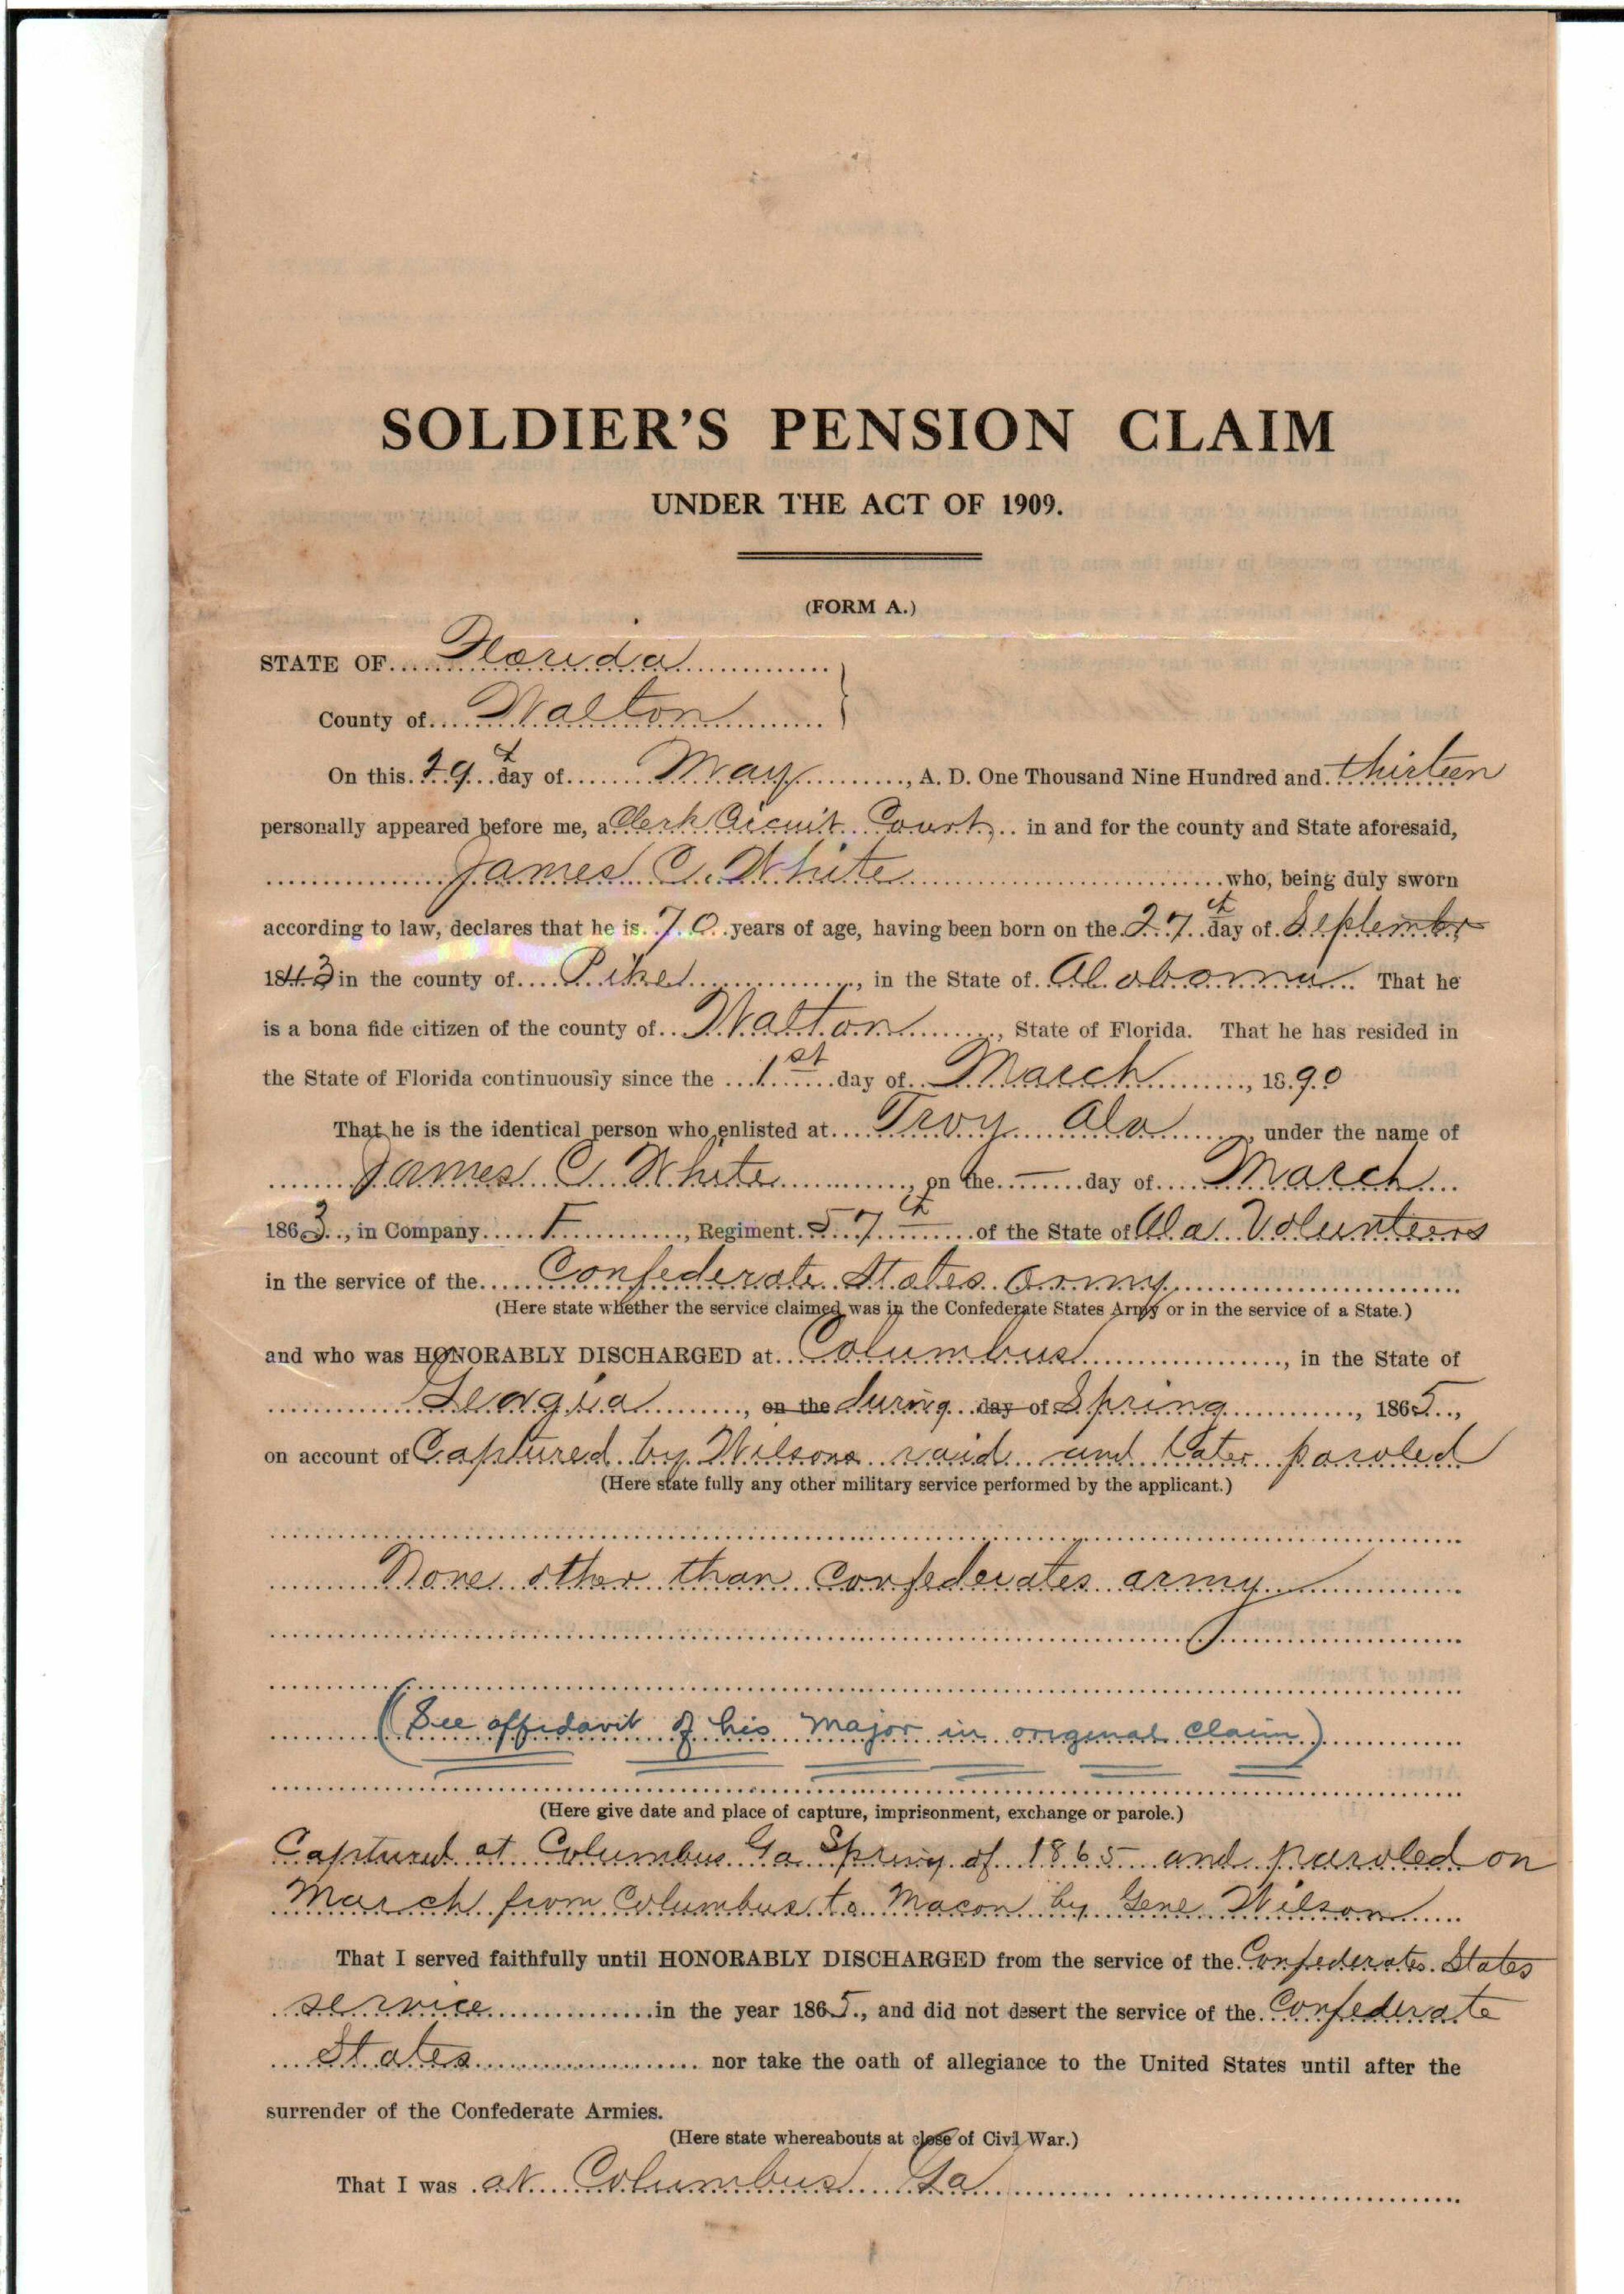 SOLDIER'S PENSION CLAIM
UNDER THE ACT OF 1909.
(FORM A.)
STATE OF Florida
County of Walton
On this 29th day of May, A. D. One Thousand Nine Hundred and thirteen
personally appeared before me, a Clerk Circuit Court in and for the county and State aforesaid,
James C. White who, being duly sworn
according to law, declares that he is 70 years of age, having been born on the 27th day of September
1843 in the county of Pike, in the State of Alabama. That he
is a bona fide citizen of the county of Walton, State of Florida. That he has resided in
the State of Florida continuously since the 1st day of March, 1890
That he is the identical person who enlisted at Troy Ala, under the name of
James C. White, on the — day of March
1863, in Company F, Regiment 57th of the State of Ala Volunteers
in the service of the Confederate States Army
(Here state whether the service claimed was in the Confederate States Army or in the service of a State.)
and who was HONORABLY DISCHARGED at Columbus, in the State of
Georgia, on the during day of Spring, 1865,
on account of Captured by Wilsons raid and later paroled
(Here state fully any other military service performed by the applicant.)
None other than Confederates army
(See affidavit of his Major in original claim)
(Here give date and place of capture, imprisonment, exchange or parole.)
Captured at Columbus Ga Spring of 1865 and paroled on
March from Columbus to Macon by Gene Wilson
That I served faithfully until HONORABLY DISCHARGED from the service of the Confederates States
service in the year 1865, and did not desert the service of the Confederate
States nor take the oath of allegiance to the United States until after the
surrender of the Confederate Armies.
(Here state whereabouts at close of Civil War.)
That I was at Columbus Ga